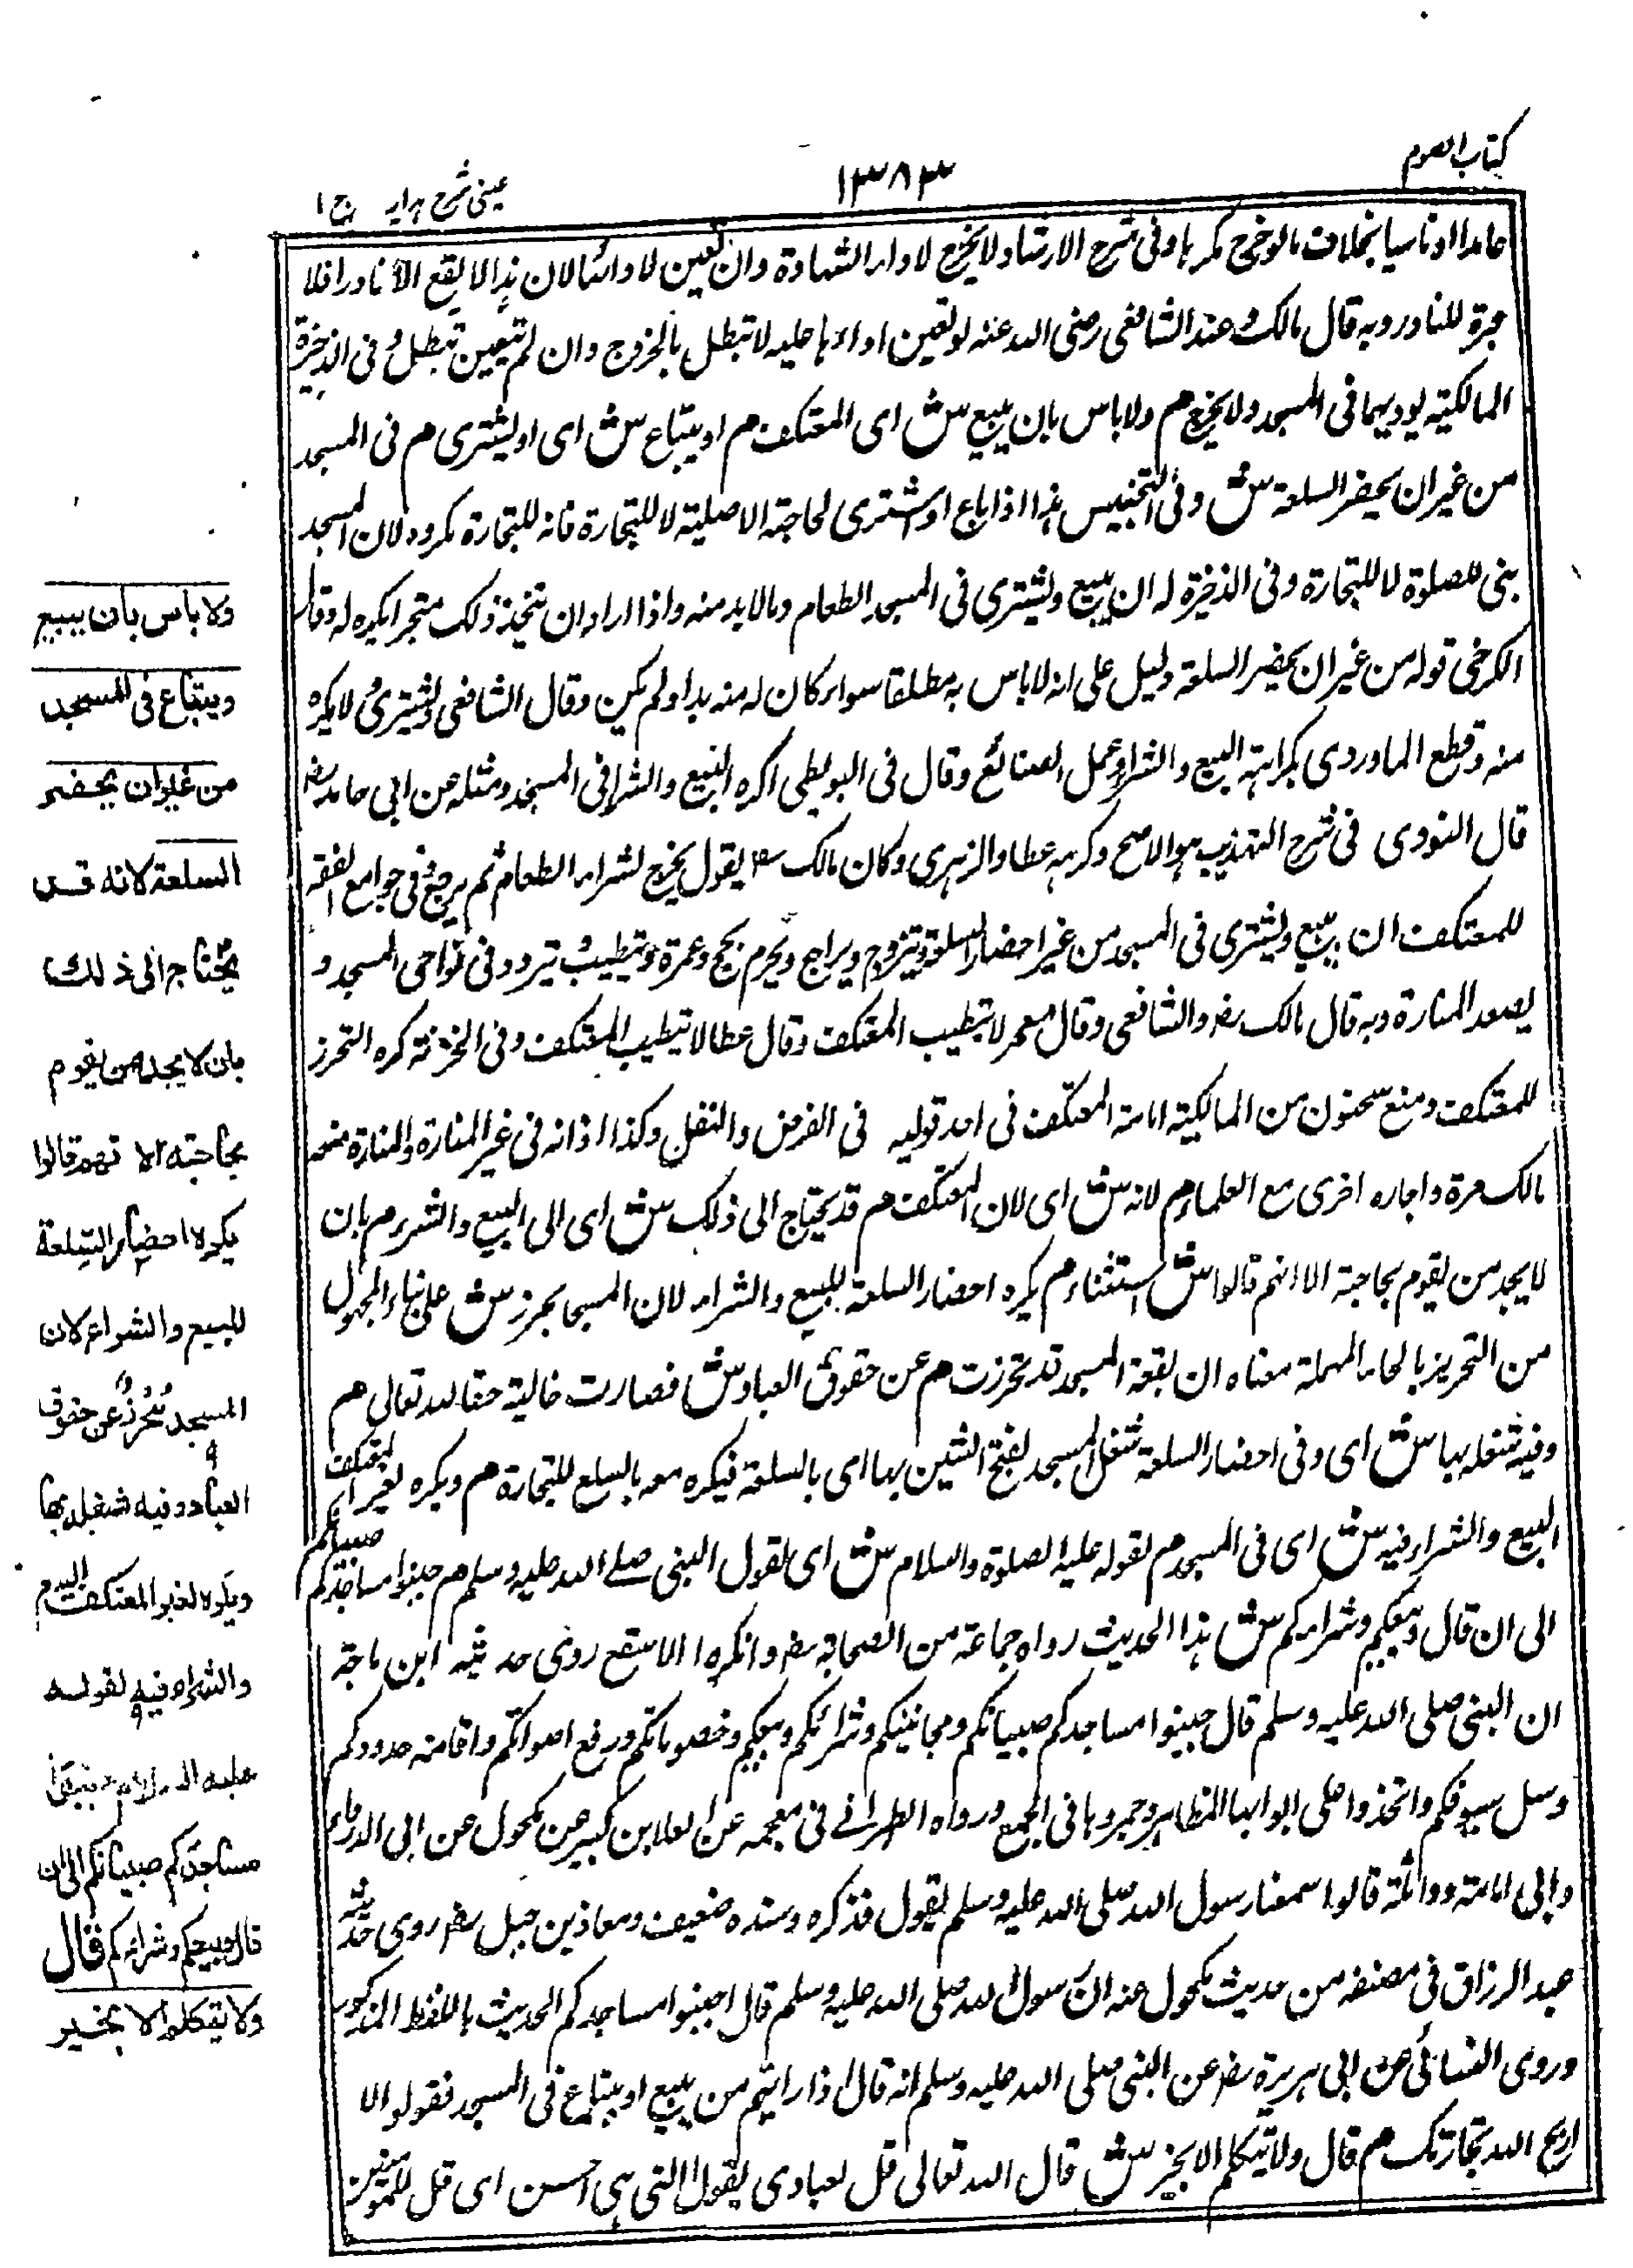 كتاب الصوم
١٣٨٣
عینی شرح ہدایہ ج ١
عامدا او ناسيا بخلاف ما لو خرج مكرها وفى شرح الارشاد ولا يخرج لاداء الشهادة وان تعين لاداءها لان هذا لا يقع الا نادرا فلا
عبرة للنادر وبه قال مالك وعند الشافعى رضى الله عنه لو تعين اداؤها عليه لا تبطل بالخروج وان لم تتعين تبطل وفى الذخيرة
المالكية يوديها فى المسجد ولا يخرج م ولا باس بان يبيع ش اى المعتكف م او يبتاع ش اى او يشترى م فى المسجد
من غير ان يحضر السلعة ش وفى التجنيس هذا اذا باع او اشترى لحاجته الاصلية لا للتجارة فانه للتجارة مكروه لان المسجد
بنى للصلوة لا للتجارة وفى الذخيرة له ان يبيع ويشترى فى المسجد الطعام وما لا بد منه واذا اراد ان يتخذ ذلك متجرا يكره له وقال
الكرخى قوله من غير ان يحضر السلعة دليل على انه لا باس به مطلقا سواء كان له منه بد او لم يكن وقال الشافعى ويشترى ولا يكره
منه وقطع الماوردى بكراهة البيع والشراء وعمل الصنائع وقال فى البويطى اكره البيع والشرا فى المسجد ومثله عن ابى حامد رض
قال النووى فى شرح التهذيب هو الاصح وكرهه عطا والزهرى وكان مالك رح يقول يخرج لشراء الطعام ثم يرجع وفى جوامع الفقه
للمعتكف ان يبيع ويشترى فى المسجد من غير احضار السلعة ويتزوج ويراجع ويحرم بحج وعمرة ويتطيب ويتردد فى نواحى المسجد و
يصعد المنارة وبه قال مالك رض والشافعى وقال معمر لا يتطيب المعتكف وقال عطا لا يتطيب المعتكف وفى الخزانة كره التحرز
للمعتكف ومنع سحنون من المالكية امامة المعتكف فى احد قوليه فى الفرض والنفل وكذا اذانه فى غير المنارة والمنارة منعه
مالك مرة واجازه اخرى مع العلماء م لانه ش اى لان المعتكف م قد يحتاج الى ذلك ش اى الى البيع والشراء م بان
لا يجد من يقوم بحاجته الا انهم قالوا ش استثناء م يكره احضار السلعة للبيع والشراء لان المسجد محرز ش على بناء المجهول
من التحريز بالحاء المهملة معناه ان بقعة المسجد قد تحرزت م عن حقوق العباد ش فصارت خالية حقا لله تعالى م
وفيه شغله بها ش اى وفى احضار السلعة شغل المسجد بفتح الشين بها اى بالسلعة فيكره معه بالسلع للتجارة م ويكره لغير المعتكف
البيع والشراء فيه ش اى فى المسجد م لقوله عليه الصلوة والسلام ش اى لقول النبى صلى الله عليه وسلم م جنبوا مساجدكم صبيانكم
الى ان قال وبيعكم وشراءكم ش هذا الحديث رواه جماعة من الصحابة رض وانكره الاسقع روى حديثه ابن ماجة
ان النبى صلى الله عليه وسلم قال جنبوا مساجدكم صبيانكم ومجانينكم وشرائكم وبيعكم وخصوماتكم ورفع اصواتكم واقامة حدودكم
وسل سيوفكم واتخذوا على ابوابها المطاهر وجمروها فى الجمع ورواه الطبرانى فى معجمه عن العلا بن كثير عن مكحول عن ابى الدرداء
وابى امامة وواثلة قالوا سمعنا رسول الله صلى الله عليه وسلم يقول فذكره وسنده ضعيف ومعاذ بن جبل رض روى حديثه
عبد الرزاق فى مصنفه من حديث مكحول عنه ان رسول الله صلى الله عليه وسلم قال اجنبوا مساجدكم الحديث باللفظ المذكور
وروى النسائى عن ابى هريرة رض عن النبى صلى الله عليه وسلم انه قال اذا رايتم من يبيع او يبتاع فى المسجد فقولوا لا
اربح الله تجارتك م قال ولا يتكلم الا بخير ش قال الله تعالى قل لعبادى يقولوا التى هى احسن اى قل للمومنين
ولا باس بان يبيع
ويبتاع فى المسجد
من غير ان يحضر
السلعة لانه قد
يحتاج الى ذلك
بان لا يجد من يقوم
بحاجته الا انهم قالوا
يكره احضار السلعة
للبيع والشراء لان
المسجد محرز عن حقوق
العباد وفيه شغله بها
ويكره لغير المعتكف البيع
والشراء فيه لقوله
عليه السلام جنبوا
مساجدكم صبيانكم الى ان
قال وبيعكم وشراءكم قال
ولا يتكلم الا بخير